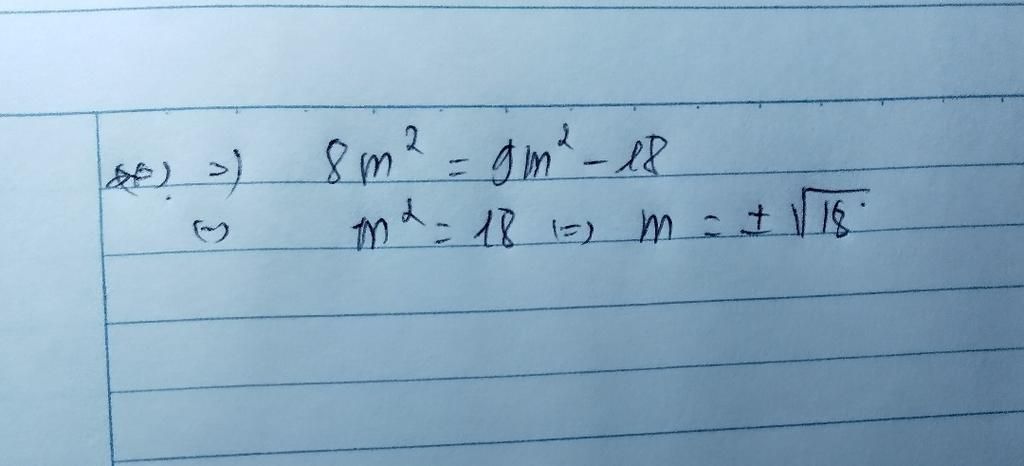 => 8m² = 9m² - 18
<=> m² = 18 <=> m = ± √18